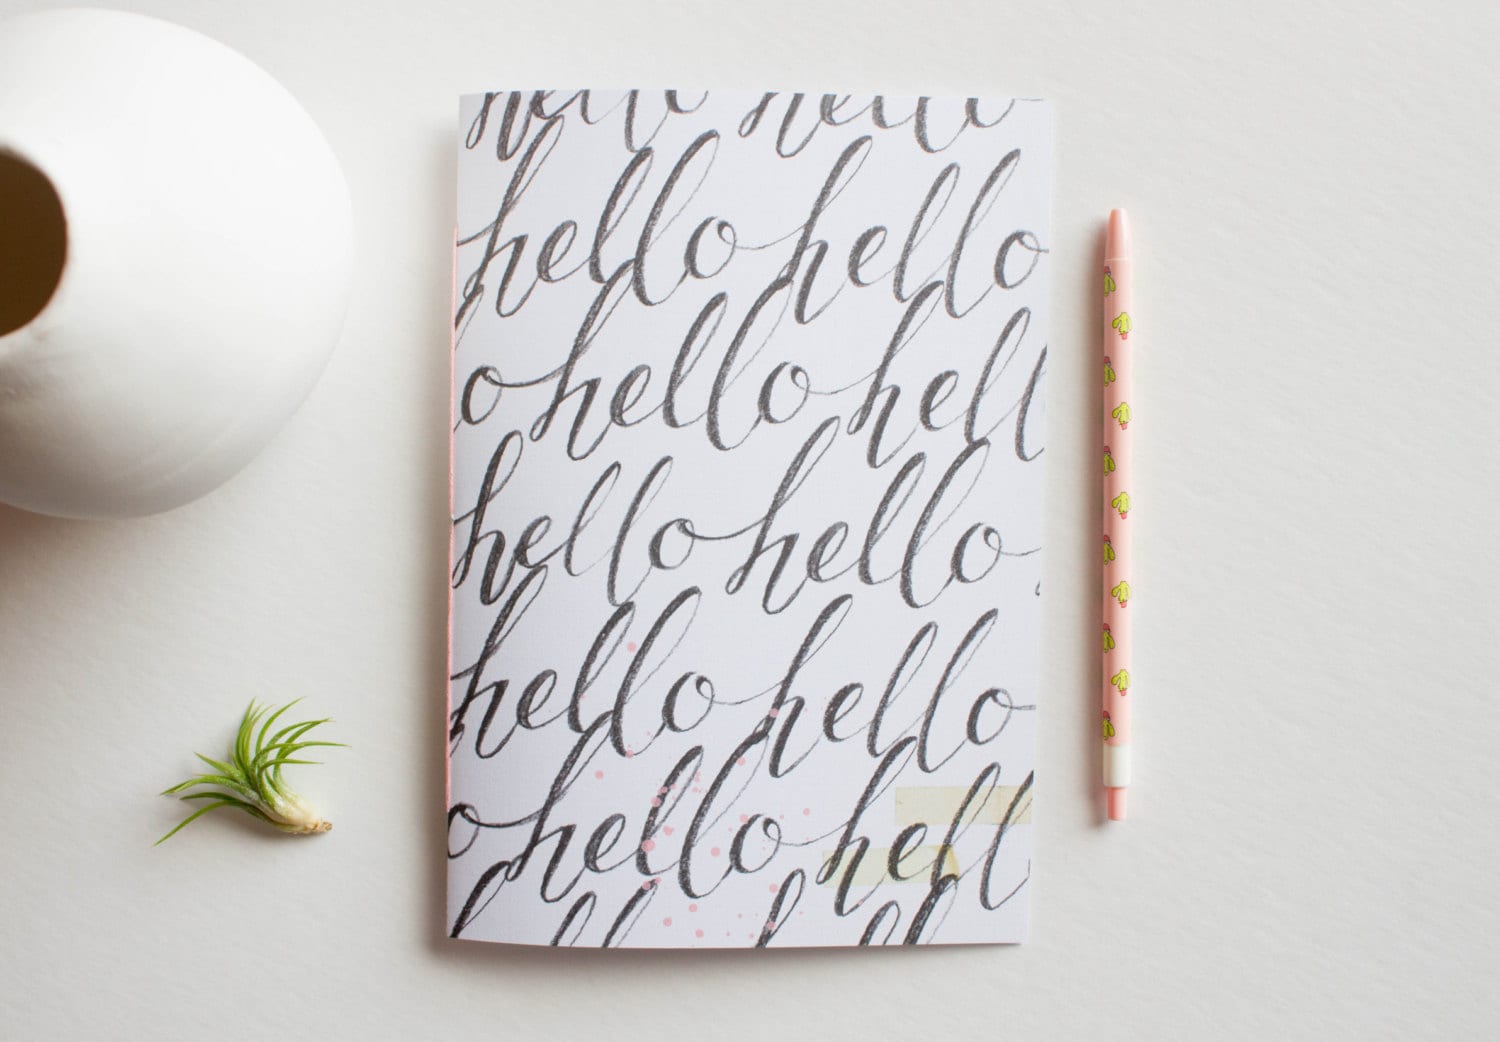 hello hello
hello hello
o hello hell
hello hello
hello hello
o hello hell